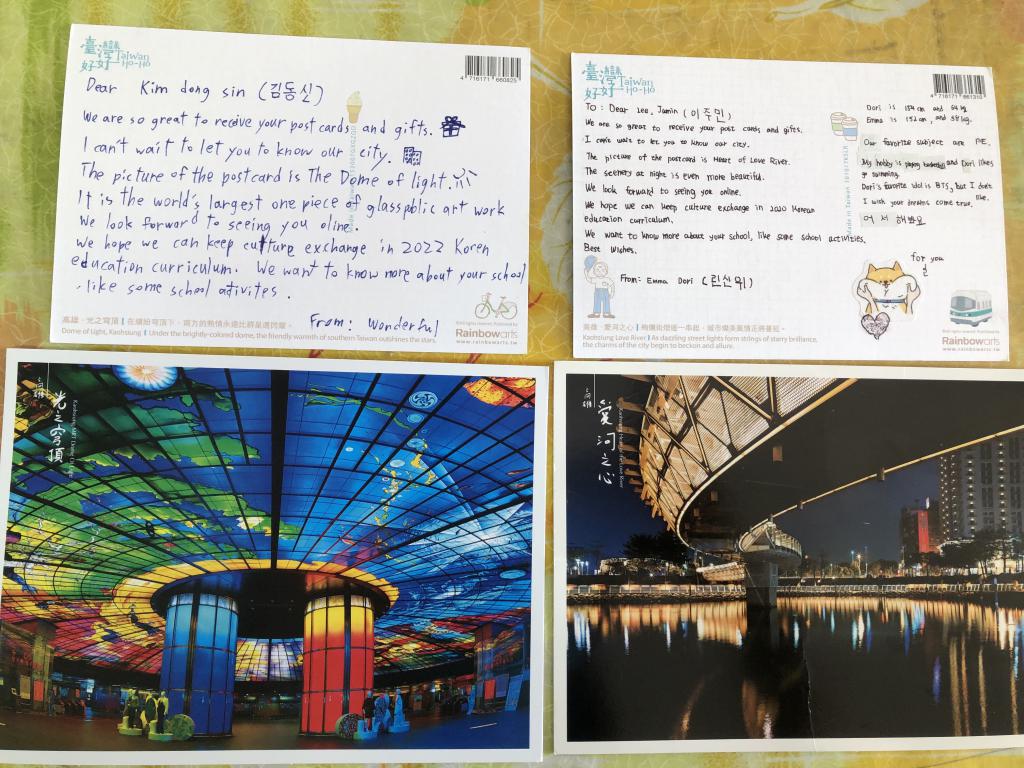 臺灣
好好
Taiwan
Ho-Ho
4 716171 660825
Dear Kim dong sin (김동신)
We are so great to receive your post cards and gifts.
I can't wait to let you to know our city.
The picture of the postcard is The Dome of light.
It is the world's largest one piece of glass pablic art work
We look forward to seeing you oline.
We hope we can keep culture exchange in 2022 Koren
education curriculum. We want to know more about your school
, like some school ativites.
From: Wonderful
高雄．光之穹頂 | 在繽紛穹頂下，南方的熱情永遠比輝星還閃耀。
Dome of Light, Kaohsiung | Under the brightly-colored dome, the friendly warmth of southern Taiwan outshines the stars.
All right reserved. Published by
Rainbowarts
www.rainbowarts.tw
臺灣
好好
Taiwan
Ho-Ho
4 716171 661310
To : Dear Lee, Jumin (이주민)
We are so great to receive your post cards and gifts.
I can't wait to let you to know our city.
The picture of the postcard is Heart of Love River.
The scenery at night is even more beautiful.
We look forward to seeing you online.
We hope we can keep culture exchange in 2020 Korean
education curriculum.
We want to know more about your school, like some school activities.
Best Wishes.
From: Emma Dori (린산위)
Made in Taiwan
Dori is 154 cm and 64 kg.
Emma is 152 cm, and 38 kg.
Our favorite subject are PE,
My hobby is playing basketball and Dori likes
go swimming.
Dori's favorite idol is BTS, but I don't
like.
I wish your dreams come true.
어서해봐요
for you
高雄．愛河之心 | 絢爛街燈連一串起，城市燦美風情正將蔓延。
Kaohsiung Love River | As dazzling street lights form strings of starry brilliance,
the charms of the city begin to beckon and allure.
All right reserved. Published by
Rainbowarts
www.rainbowarts.tw
高雄
光之穹頂
高雄
愛河之心